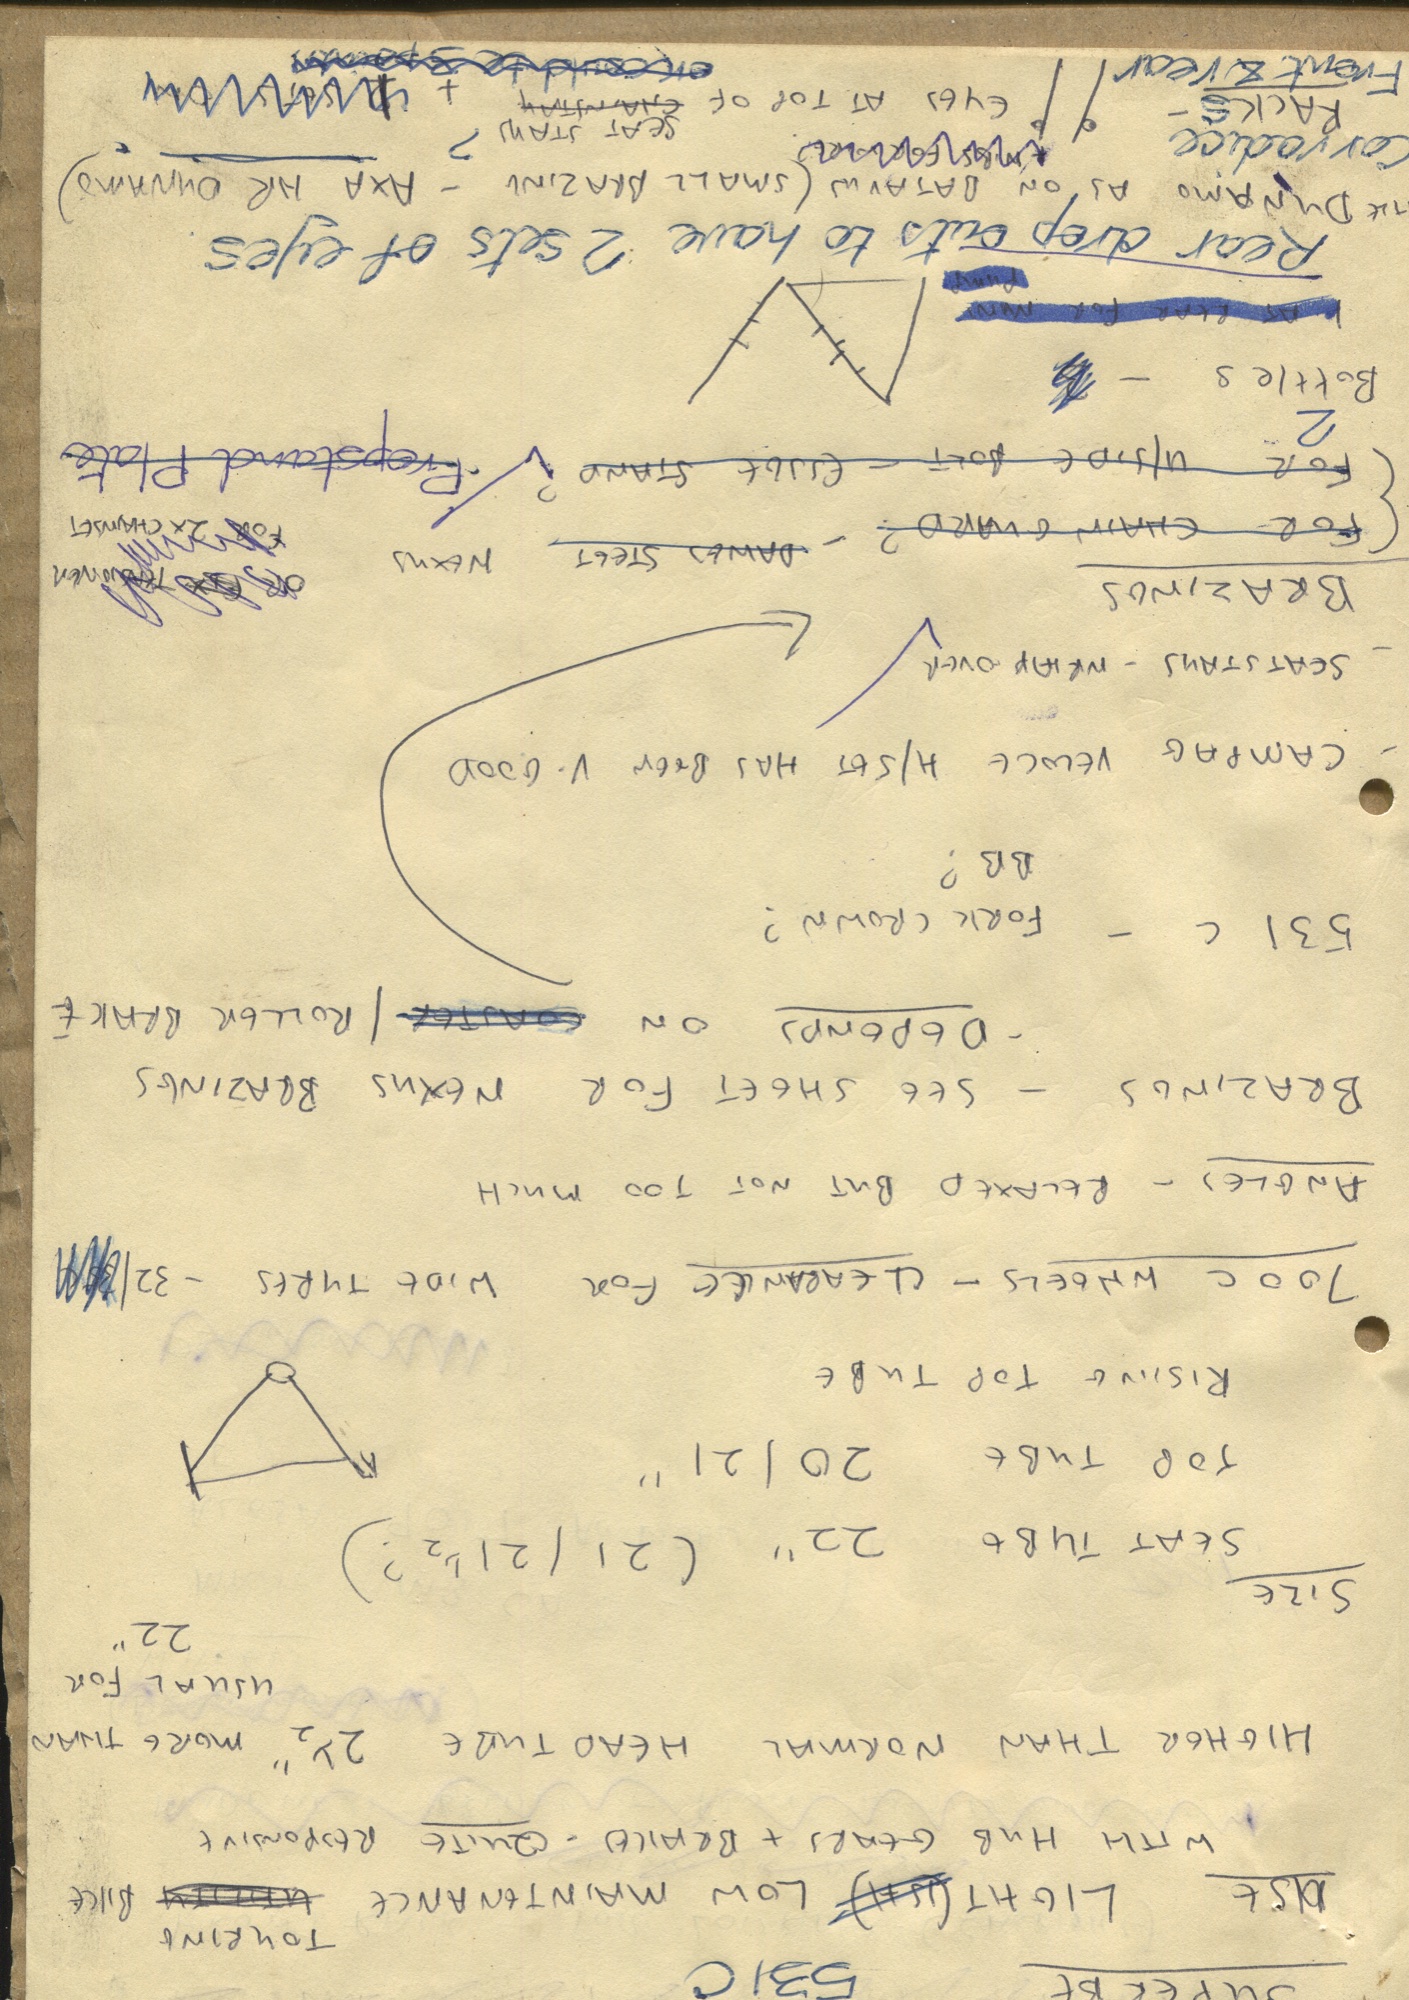 SUPERBE 531C
TOURING
USE LIGHT(ISH) LOW MAINTENANCE BIKE
WITH HUB GEARS + BRAKES - QUITE RESPONSIVE
HIGHER THAN NORMAL HEAD TUBE 2½" MORE THAN
USUAL FOR
22"
SIZE
SEAT TUBE 22" (21/21½?)
TOP TUBE 20/21"
RISING TOP TUBE
700C WHEELS - CLEARANCE FOR WIDE TYRES - 32/
ANGLES - RELAXED BUT NOT TOO MUCH
BRAZINGS - SEE SHEET FOR NEXUS BRAZINGS
- DEPENDS ON COASTER / ROLLER BRAKE
531 C - FORK CROWN?
BB?
- CAMPAG VELOCE H/SET HAS BEEN V. GOOD
- SEATSTAYS - WRAP OVER
BRAZINGS
OR
FOR CHAIN GUARD? - DAWES STEET NEXUS
FOR 2X CHAINSET
FOR U/SIDE BOLT - ESGE STAND? Propstand Plate
2
Bottles -
AT REAR FOR MINI
PUMP
Rear drop outs to have 2 sets of eyes
DYNAMO AS ON BATAVUS (SMALL BRAZING - AXA HR DYNAMO)
Carradice
SEAT STAY?
RACKS - EYES AT TOP OF CHAINSTAY +
Front & rear